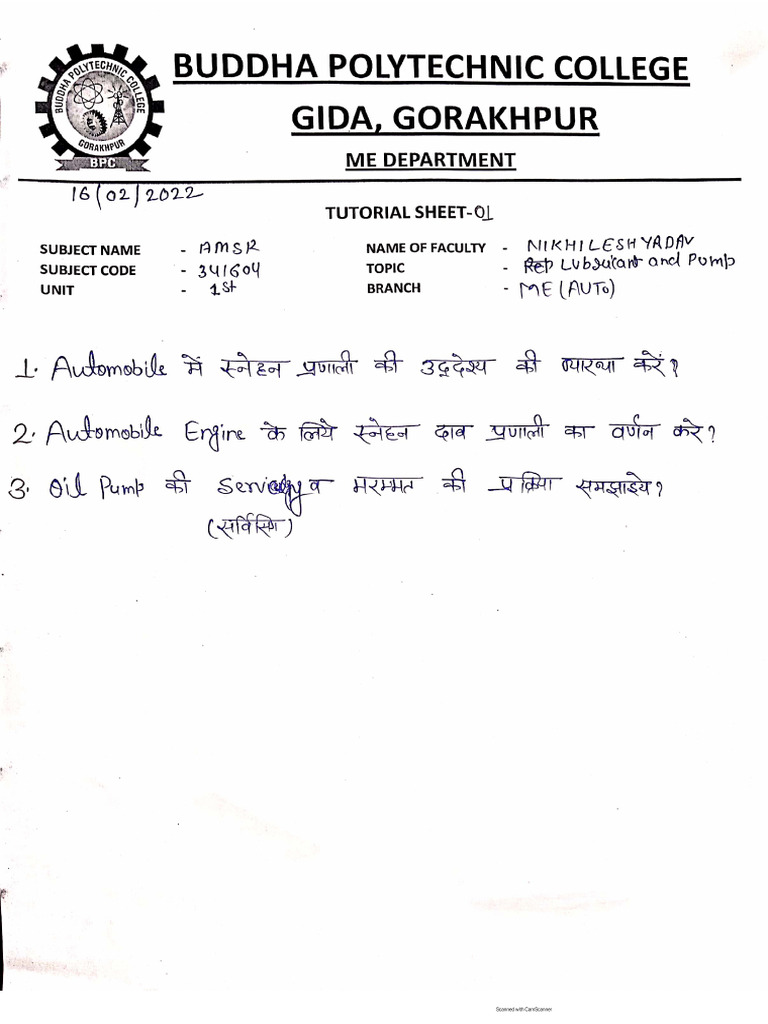 BUDDHA POLYTECHNIC COLLEGE
GORAKHPUR
BPC
BUDDHA POLYTECHNIC COLLEGE
GIDA, GORAKHPUR
ME DEPARTMENT
16/02/2022
TUTORIAL SHEET-01
SUBJECT NAME - AMSR
NAME OF FACULTY - NIKHILESH YADAV
SUBJECT CODE - 341604
TOPIC - Lubricant and Pump
UNIT - 1st
BRANCH - ME (AUTO)
1. Automobile में स्नेहन प्रणाली की उद्देश्य की व्याख्या करें?
2. Automobile Engine के लिये स्नेहन दाव प्रणाली का वर्णन करे?
3. Oil Pump की व मरम्मत की प्रक्रिया समझाइये?
(सर्विसिंग)
Scanned with CamScanner